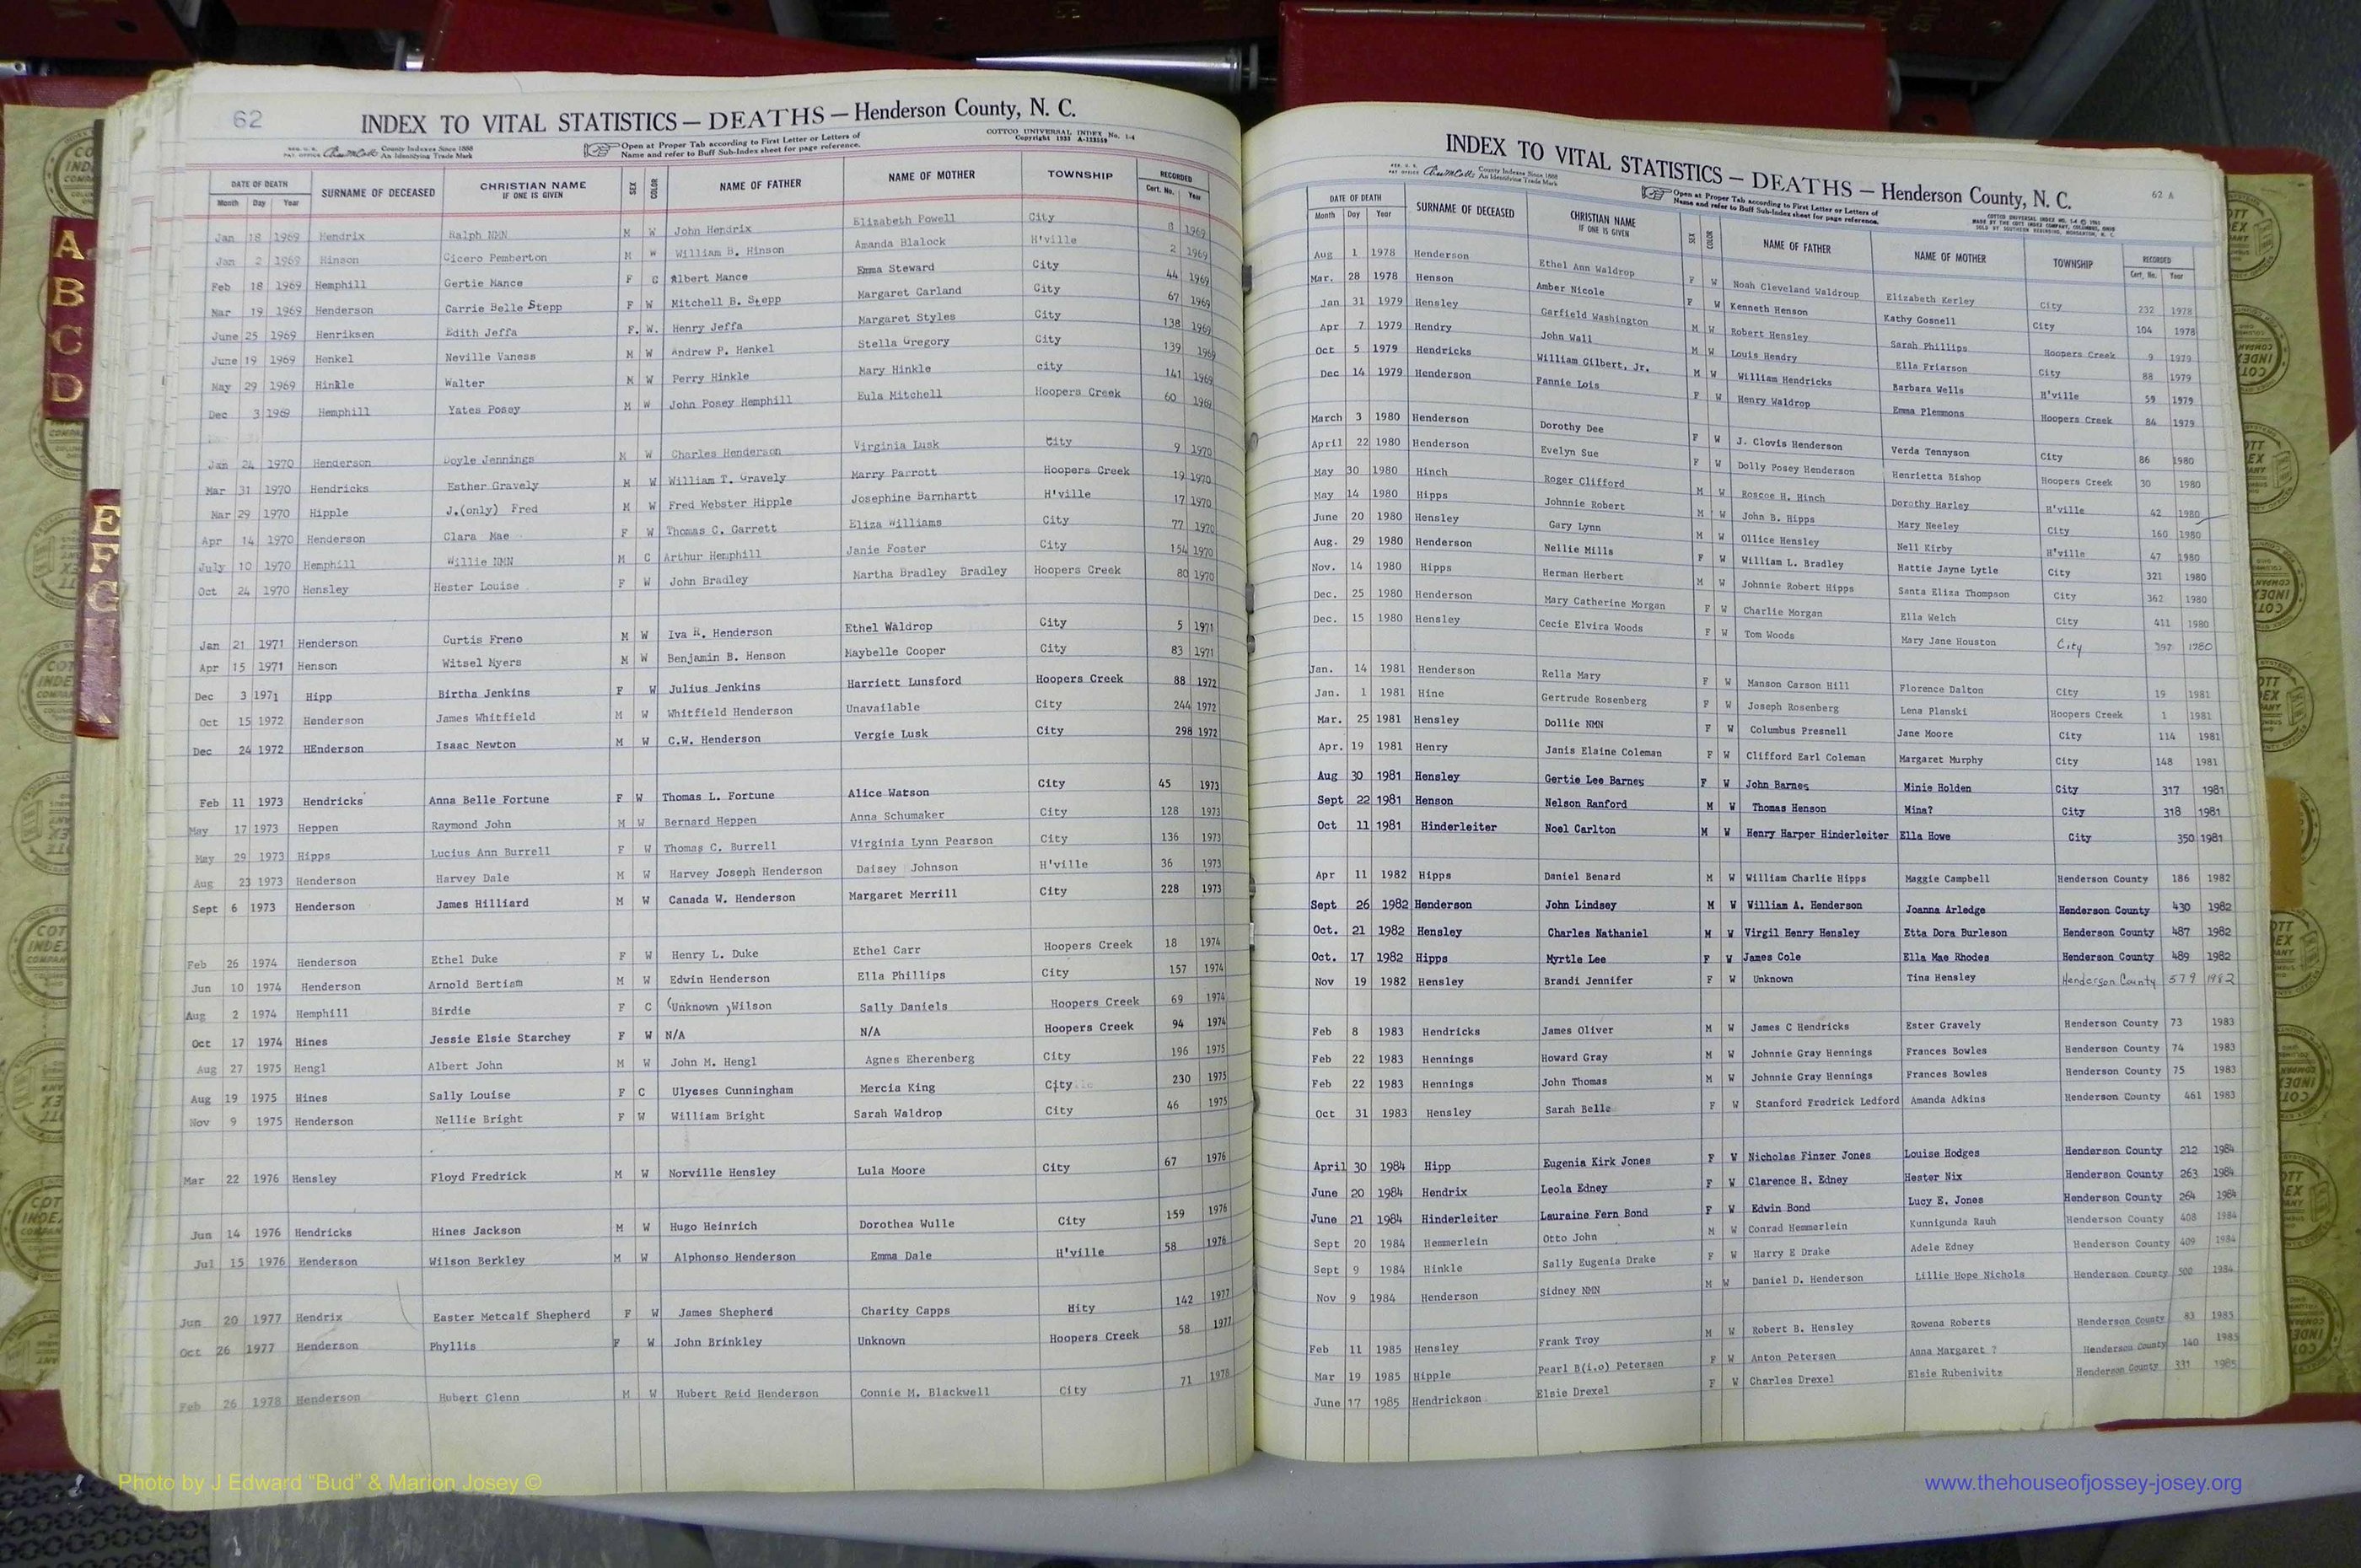 62
INDEX TO VITAL STATISTICS — DEATHS — Henderson County, N. C.
REG. U. S. PAT. OFFICE County Indexes Since 1888 An Identifying Trade Mark
Open at Proper Tab according to First Letter or Letters of Name and refer to Buff Sub-Index sheet for page reference.
COTTCO UNIVERSAL INDEX No. 1-4
DATE OF DEATH Month Day Year SURNAME OF DECEASED CHRISTIAN NAME IF ONE IS GIVEN SEX COLOR NAME OF FATHER NAME OF MOTHER TOWNSHIP RECORDED Cert. No. Year
Jan 18 1969 Hendrix Ralph NMN M W John Hendrix Elizabeth Powell City 1969
Jan 2 1969 Hinson Cicero Pemberton M W William B. Hinson Amanda Blalock H'ville 2 1969
Feb 18 1969 Hemphill Gertie Mance F C Albert Mance Emma Steward City 44 1969
Mar 19 1969 Henderson Carrie Belle Stepp F W Mitchell B. Stepp Margaret Carland City 67 1969
June 25 1969 Henriksen Edith Jeffa F. W. Henry Jeffa Margaret Styles City 138 1969
June 19 1969 Henkel Neville Vaness M W Andrew P. Henkel Stella Gregory City 139 1969
May 29 1969 Hinkle Walter M W Perry Hinkle Mary Hinkle city 141 1969
Dec 3 1969 Hemphill Yates Posey M W John Posey Hemphill Eula Mitchell Hoopers Creek 60 1969
Jan 24 1970 Henderson Doyle Jennings M W Charles Henderson Virginia Lusk City 9 1970
Mar 31 1970 Hendricks Esther Gravely M W William T. Gravely Marry Parrott Hoopers Creek 19 1970
Mar 29 1970 Hipple J.(only) Fred M W Fred Webster Hipple Josephine Barnhartt H'ville 17 1970
Apr 14 1970 Henderson Clara Mae F W Thomas C. Garrett Eliza Williams City 77 1970
July 10 1970 Hemphill Willie NMN M C Arthur Hemphill Janie Foster City 154 1970
Oct 24 1970 Hensley Hester Louise F W John Bradley Martha Bradley Bradley Hoopers Creek 80 1970
Jan 21 1971 Henderson Curtis Freno M W Iva R. Henderson Ethel Waldrop City 5 1971
Apr 15 1971 Henson Witsel Myers M W Benjamin B. Henson Maybelle Cooper City 83 1971
Dec 3 1971 Hipp Birtha Jenkins F W Julius Jenkins Harriett Lunsford Hoopers Creek 88 1972
Oct 15 1972 Henderson James Whitfield M W Whitfield Henderson Unavailable City 244 1972
Dec 24 1972 HEnderson Isaac Newton M W C.W. Henderson Vergie Lusk City 298 1972
Feb 11 1973 Hendricks Anna Belle Fortune F W Thomas L. Fortune Alice Watson City 45 1973
May 17 1973 Heppen Raymond John M W Bernard Heppen Anna Schumaker City 128 1973
May 29 1973 Hipps Lucius Ann Burrell F W Thomas C. Burrell Virginia Lynn Pearson City 136 1973
Aug 23 1973 Henderson Harvey Dale M W Harvey Joseph Henderson Daisey Johnson H'ville 36 1973
Sept 6 1973 Henderson James Hilliard M W Canada W. Henderson Margaret Merrill City 228 1973
Feb 26 1974 Henderson Ethel Duke F W Henry L. Duke Ethel Carr Hoopers Creek 18 1974
Jun 10 1974 Henderson Arnold Bertiam M W Edwin Henderson Ella Phillips City 157 1974
Aug 2 1974 Hemphill Birdie F C (Unknown )Wilson Sally Daniels Hoopers Creek 69 1974
Oct 17 1974 Hines Jessie Elsie Starchey F W N/A N/A Hoopers Creek 94 1974
Aug 27 1975 Hengl Albert John M W John M. Hengl Agnes Eherenberg City 196 1975
Aug 19 1975 Hines Sally Louise F C Ulysses Cunningham Mercia King City 230 1975
Nov 9 1975 Henderson Nellie Bright F W William Bright Sarah Waldrop City 46 1975
Mar 22 1976 Hensley Floyd Fredrick M W Norville Hensley Lula Moore City 67 1976
Jun 14 1976 Hendricks Hines Jackson M W Hugo Heinrich Dorothea Wulle City 159 1976
Jul 15 1976 Henderson Wilson Berkley M W Alphonso Henderson Emma Dale H'ville 58 1976
Jun 20 1977 Hendrix Easter Metcalf Shepherd F W James Shepherd Charity Capps Hity 142 1977
Oct 26 1977 Henderson Phyllis F W John Brinkley Unknown Hoopers Creek 58 1977
Feb 26 1978 Henderson Hubert Glenn M W Hubert Reid Henderson Connie M. Blackwell City 71 1978
INDEX TO VITAL STATISTICS — DEATHS — Henderson County, N. C.
62 A
County Indexes Since 1888 An Identifying Trade Mark
Open at Proper Tab according to First Letter or Letters of Name and refer to Buff Sub-Index sheet for page reference.
DATE OF DEATH Month Day Year SURNAME OF DECEASED CHRISTIAN NAME IF ONE IS GIVEN SEX COLOR NAME OF FATHER NAME OF MOTHER TOWNSHIP RECORDED Cert. No. Year
Aug 1 1978 Henderson Ethel Ann Waldrop F W Noah Cleveland Waldroup Elizabeth Kerley City 232 1978
Mar. 28 1978 Henson Amber Nicole F W Kenneth Henson Kathy Gosnell City 104 1978
Jan 31 1979 Hensley Garfield Washington M W Robert Hensley Sarah Phillips Hoopers Creek 9 1979
Apr 7 1979 Hendry John Wall M W Louis Hendry Ella Friarson City 88 1979
Oct 5 1979 Hendricks William Gilbert, Jr. M W William Hendricks Barbara Wells H'ville 59 1979
Dec 14 1979 Henderson Fannie Lois F W Henry Waldrop Emma Plemmons Hoopers Creek 84 1979
March 3 1980 Henderson Dorothy Dee F W J. Clovis Henderson Verda Tennyson City 86 1980
April 22 1980 Henderson Evelyn Sue F W Dolly Posey Henderson Henrietta Bishop Hoopers Creek 30 1980
May 30 1980 Hinch Roger Clifford M W Roscoe H. Hinch Dorothy Harley H'ville 42 1980
May 14 1980 Hipps Johnnie Robert M W John B. Hipps Mary Neeley City 160 1980
June 20 1980 Hensley Gary Lynn M W Ollice Hensley Nell Kirby H'ville 47 1980
Aug. 29 1980 Henderson Nellie Mills F W William L. Bradley Hattie Jayne Lytle City 321 1980
Nov. 14 1980 Hipps Herman Herbert M W Johnnie Robert Hipps Santa Eliza Thompson City 362 1980
Dec. 25 1980 Henderson Mary Catherine Morgan F W Charlie Morgan Ella Welch City 411 1980
Dec. 15 1980 Hensley Cecie Elvira Woods F W Tom Woods Mary Jane Houston City 397 1980
Jan. 14 1981 Henderson Rella Mary F W Manson Carson Hill Florence Dalton City 19 1981
Jan. 1 1981 Hine Gertrude Rosenberg F W Joseph Rosenberg Lena Planski Hoopers Creek 1 1981
Mar. 25 1981 Hensley Dollie NMN F W Columbus Presnell Jane Moore City 114 1981
Apr. 19 1981 Henry Janis Elaine Coleman F W Clifford Earl Coleman Margaret Murphy City 148 1981
Aug 30 1981 Hensley Gertie Lee Barnes F W John Barnes Minie Holden City 317 1981
Sept 22 1981 Henson Nelson Ranford M W Thomas Henson Mina? City 318 1981
Oct 11 1981 Hinderleiter Noel Carlton M W Henry Harper Hinderleiter Ella Howe City 350 1981
Apr 11 1982 Hipps Daniel Benard M W William Charlie Hipps Maggie Campbell Henderson County 186 1982
Sept 26 1982 Henderson John Lindsey M W William A. Henderson Joanna Arledge Henderson County 430 1982
Oct. 21 1982 Hensley Charles Nathaniel M W Virgil Henry Hensley Etta Dora Burleson Henderson County 487 1982
Oct. 17 1982 Hipps Myrtle Lee F W James Cole Ella Mae Rhodes Henderson County 489 1982
Nov 19 1982 Hensley Brandi Jennifer F W Unknown Tina Hensley Henderson County 579 1982
Feb 8 1983 Hendricks James Oliver M W James C Hendricks Ester Gravely Henderson County 73 1983
Feb 22 1983 Hennings Howard Gray M W Johnnie Gray Hennings Frances Bowles Henderson County 74 1983
Feb 22 1983 Hennings John Thomas M W Johnnie Gray Hennings Frances Bowles Henderson County 75 1983
Oct 31 1983 Hensley Sarah Belle F W Stanford Fredrick Ledford Amanda Adkins Henderson County 461 1983
April 30 1984 Hipp Eugenia Kirk Jones F W Nicholas Finzer Jones Louise Hodges Henderson County 212 1984
June 20 1984 Hendrix Leola Edney F W Clarence H. Edney Hester Nix Henderson County 263 1984
June 21 1984 Hinderleiter Lauraine Fern Bond F W Edwin Bond Lucy E. Jones Henderson County 264 1984
Sept 20 1984 Hemmerlein Otto John M W Conrad Hemmerlein Kunnigunda Rauh Henderson County 408 1984
Sept 9 1984 Hinkle Sally Eugenia Drake F W Harry E Drake Adele Edney Henderson County 409 1984
Nov 9 1984 Henderson Sidney NMN M W Daniel D. Henderson Lillie Hope Nichols Henderson County 500 1984
Feb 11 1985 Hensley Frank Troy M W Robert B. Hensley Rowena Roberts Henderson County 83 1985
Mar 19 1985 Hipple Pearl B(i.o) Petersen F W Anton Petersen Anna Margaret ? Henderson County 140 1985
June 17 1985 Hendrickson Elsie Drexel F W Charles Drexel Elsie Rubeniwitz Henderson County 331 1985
A
B
C
D
E
F
G
Photo by J Edward "Bud" & Marion Josey ©
www.thehouseofjossey-josey.org